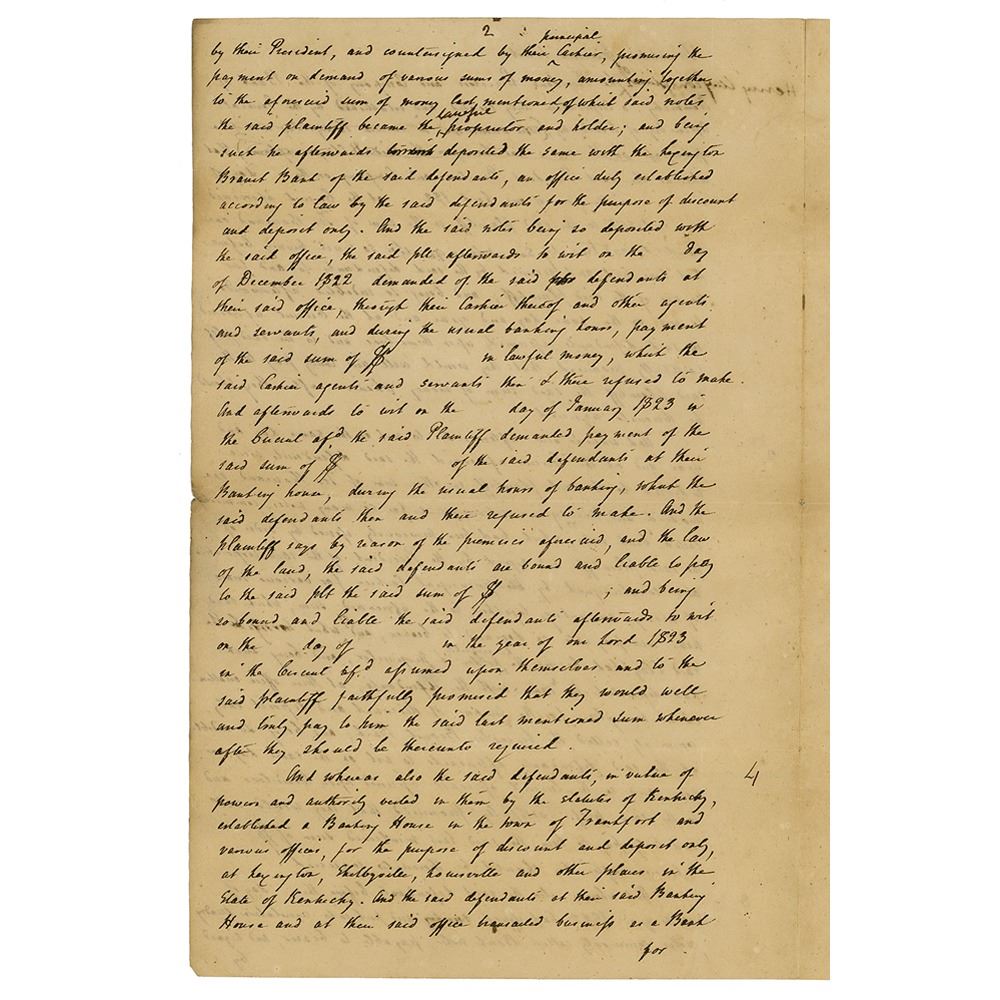 2
principal
by their President, and countersigned by their Cashier, promising the
payment on demand of various sums of money, amounting together
to the aforesaid sum of money last mentioned, of which said notes
lawful
the said plaintiff became the proprietor and holder; and being
such he afterwards deposited the same with the Lexington
Branch Bank of the said defendants, an office duly established
according to law by the said defendants for the purpose of discount
and deposit only. And the said notes being so deposited with
the said office, the said plt afterwards to wit on the day
of December 1822 demanded of the said defendants at
their said office, through their Cashier thereof and other agents
and servants, and during the usual banking hours, payment
of the said sum of $ in lawful money, which the
said Cashier agents and servants then & there refused to make.
And afterwards to wit on the day of January 1823 in
the Circuit afd the said Plaintiff demanded payment of the
said sum of $ of the said defendants at their
Banking house, during the usual hours of banking, which the
said defendants then and there refused to make. And the
plaintiff says by reason of the premises aforesaid, and the law
of the land, the said defendants are bound and liable to pay
to the said plt the said sum of $ ; and being
so bound and liable the said defendants afterwards to wit
on the day of in the year of our Lord 1823
in the Circuit afd assumed upon themselves and to the
said plaintiff faithfully promised that they would well
and truly pay to him the said last mentioned sum whenever
after they should be thereunto required.
And whereas also the said defendants, in virtue of
4
powers and authority vested in them by the statutes of Kentucky,
established a Banking House in the town of Frankfort and
various offices, for the purpose of discount and deposit only,
at Lexington, Shelbyville, Louisville and other places in the
State of Kentucky. And the said defendants at their said Banking
House and at their said office transacted business as a Bank
for